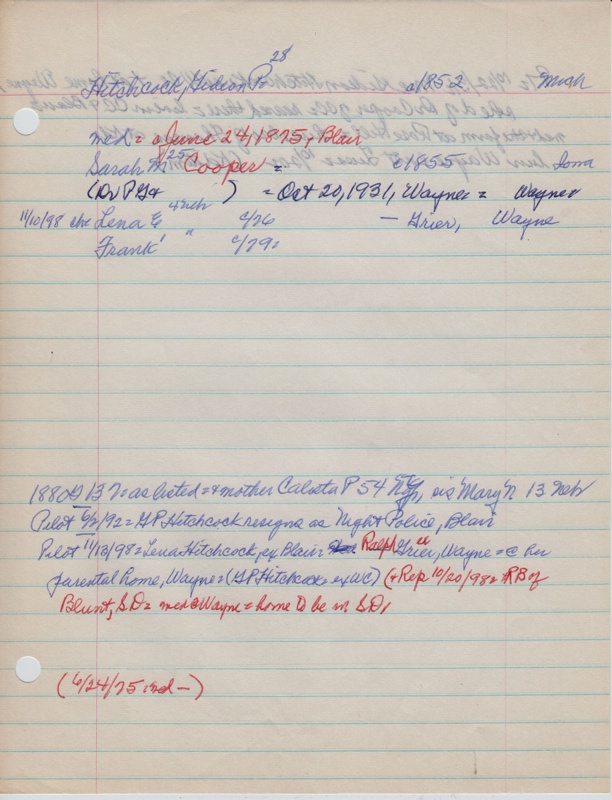 28
Hitchcock, Gideon P= c/1852 Mich
med = June 24, 1875, Blair
Sarah M 25 Cooper = c1855 Iowa
(Dr P G+ ) = Oct 20, 1931, Wayne = Wayne
11/10/98 Lena E 4 Neb c/76 — Grier, Wayne
Frank " c/79
1880 B 7 = as listed = + mother Calista P 54 NY, sis "Mary" N 13 Neb
Pilot 6/2/92 = GP Hitchcock resigns as Night Police, Blair
Pilot 11/18/98 = Lena Hitchcock, ex Blair Ralph Grier, Wayne = @ her
parental home, Wayne = (GP Hitchcock = ex WC) (+ Rep 10/20/98 = RB of
Blunt, SD = med @ Wayne = home to be in SD,
(6/24/75 med —)